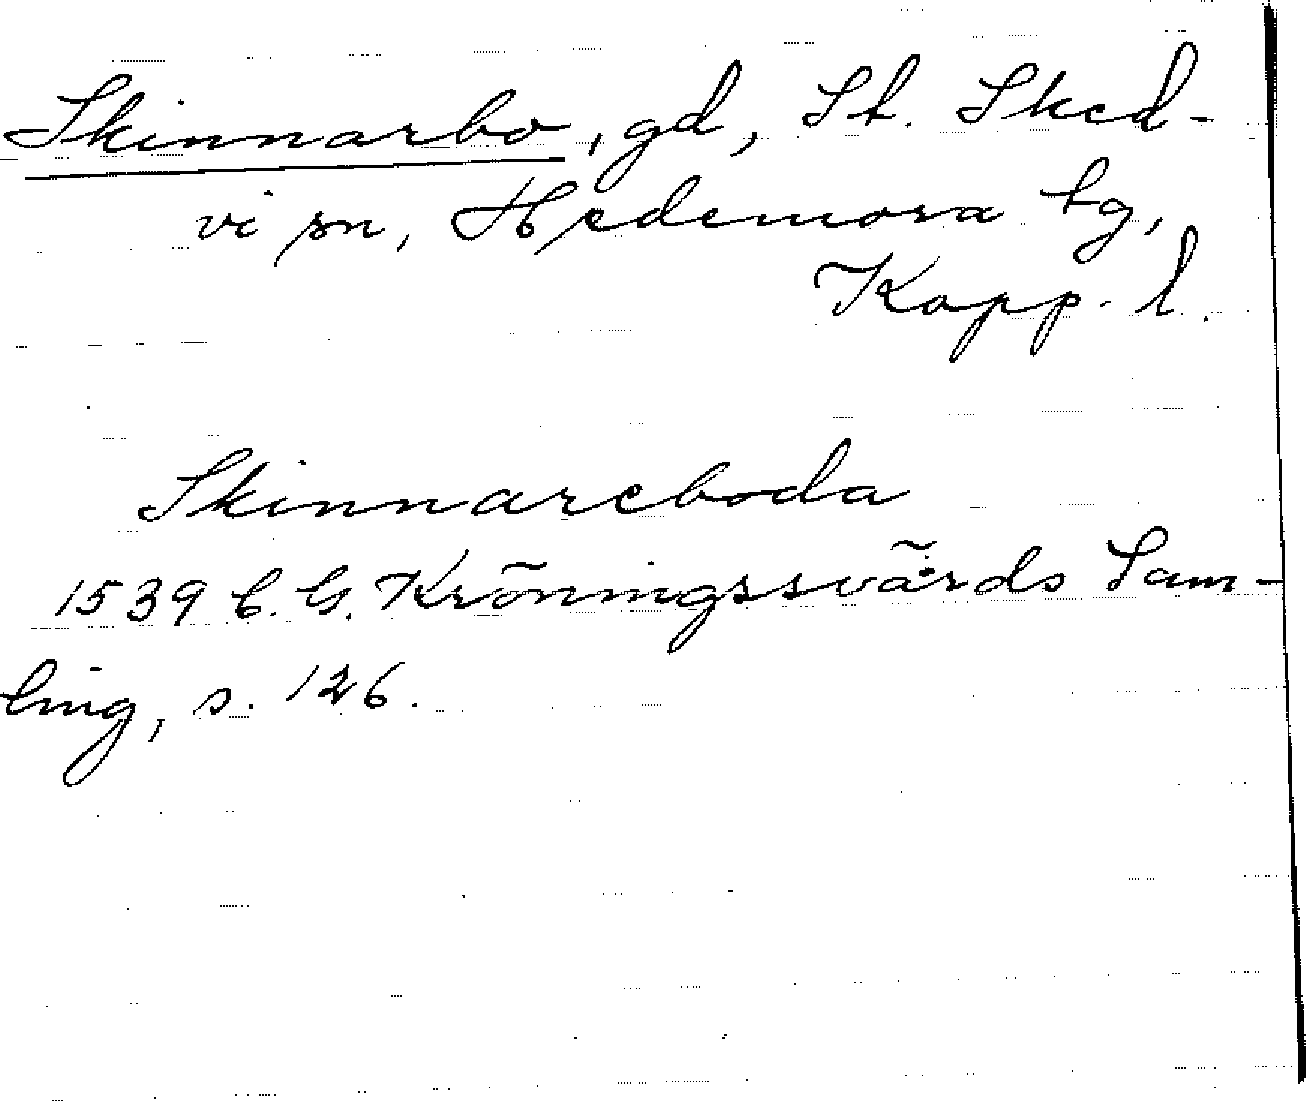 Skinnarbo, gd, St. Sked-
vi sn, Hedemora tg,
Kopp. l.
Skinnareboda
1539 C. G. Kröningssvärds Sam-
ling, s. 126.